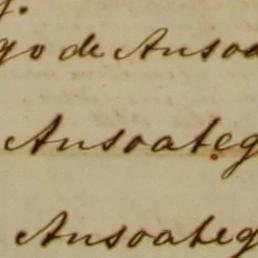 go de Ansoa
Ansoateg
Ansoateg